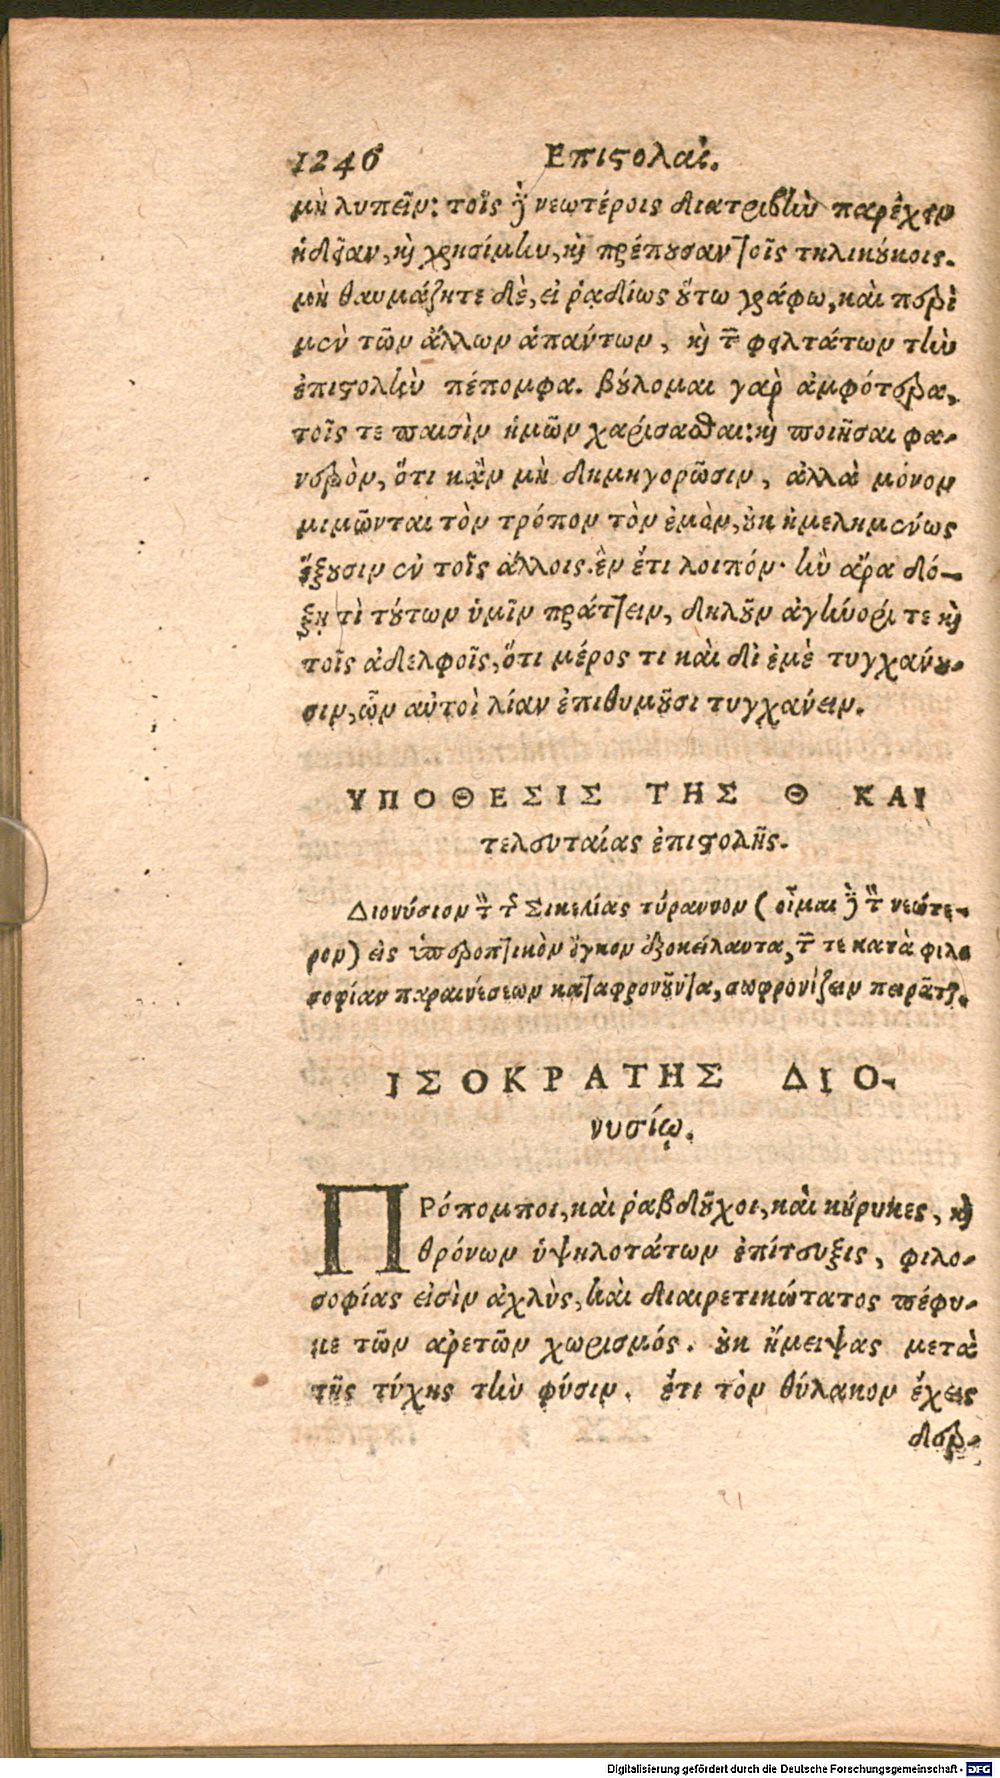 1246 Επιστολαί.
μὴ λυπεῖν: τοῖς δὲ νεωτέροις διατριβὴν παρέχειν
ἡδεῖαν, καὶ χρησίμην, καὶ πρέπουσαν τοῖς τηλικούτοις.
μὴ θαυμάζητε δὲ, εἰ ῥᾳδίως οὕτω γράφω, καὶ περὶ
μὲν τῶν ἄλλων ἁπάντων, καὶ τῶν φιλτάτων τὴν
ἐπιστολὴν πέπομφα. βούλομαι γὰρ ἀμφότερα,
τοῖς τε παισὶν ἡμῶν χαρίσασθαι: καὶ ποιῆσαι φα-
νερὸν, ὅτι κἂν μὴ δημηγορῶσιν, ἀλλὰ μόνον
μιμῶνται τὸν τρόπον τὸν ἐμὸν, οὐκ ἠμελημένως
ἕξουσιν ἐν τοῖς ἄλλοις. ἓν ἔτι λοιπόν· ἢν ἄρα δό-
ξῃ τὶ τούτων ὑμῖν πράττειν, δηλοῦν ἀγήνορί τε καὶ
τοῖς ἀδελφοῖς, ὅτι μέρος τι καὶ δι ἐμὲ τυγχάνου-
σιν, ὧν αὐτοὶ λίαν ἐπιθυμοῦσι τυγχάνειν.
ΥΠΟΘΕΣΙΣ ΤΗΣ Θ ΚΑΙ
τελευταίας ἐπιστολῆς.
Διονύσιον τὸν τῆς Σικελίας τύραννον (οἶμαι δὲ τὸν νεώτε-
ρον) εἰς ὑπεροπτικὸν ὄγκον ἐξοκείλαντα, τῶν τε κατὰ φιλο
σοφίαν παραινέσεων καταφρονοῦντα, σωφρονίζειν πειρᾶται.
ΙΣΟΚΡΑΤΗΣ ΔΙΟ-
νυσίῳ.
ΠΡόπομποι, καὶ ῥαβδοῦχοι, καὶ κήρυκες, καὶ
θρόνων ὑψηλοτάτων ἐπίτευξις, φιλο-
σοφίας εἰσὶν ἀχλὺς, καὶ διαιρετικώτατος πέφυ-
κε τῶν ἀρετῶν χωρισμός. οὐκ ἤμειψας μετὰ
τῆς τύχης τὴν φύσιν. ἔτι τὸν θύλακον ἔχεις
δερ-
Digitalisierung gefördert durch die Deutsche Forschungsgemeinschaft - DFG